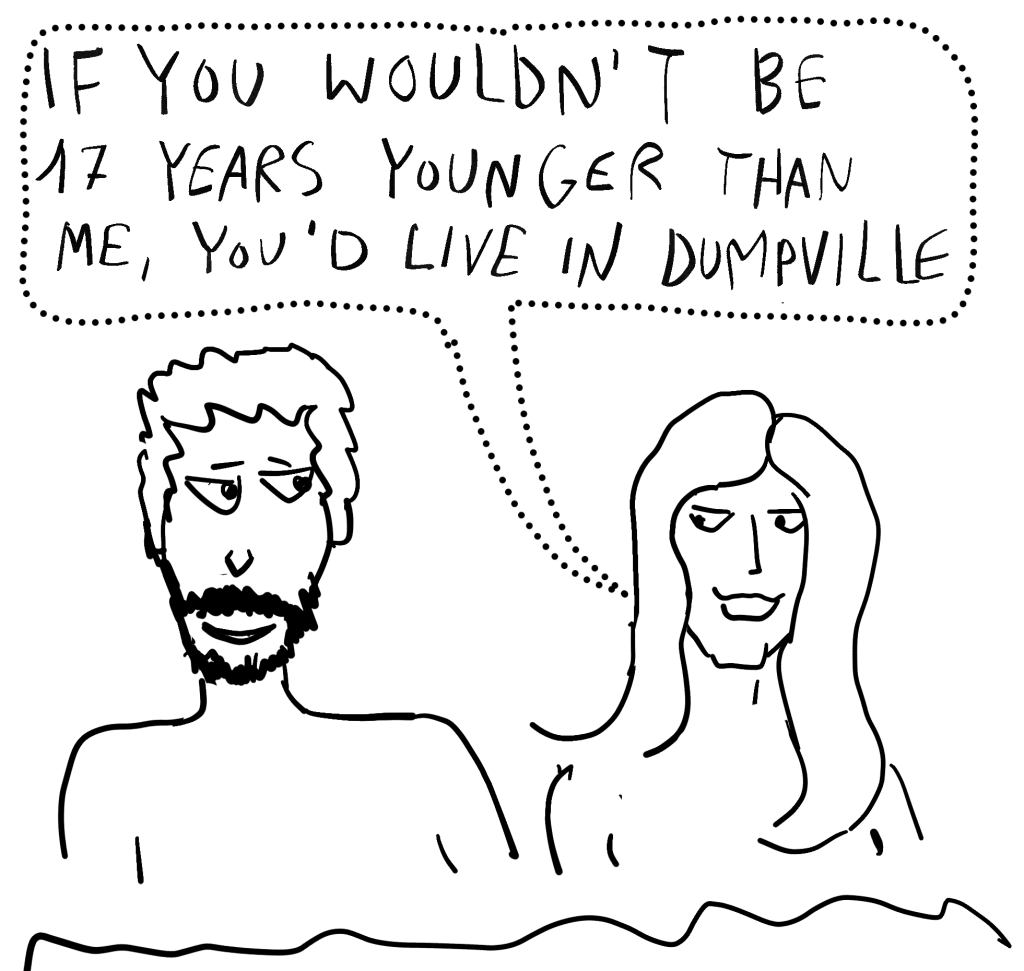 IF YOU WOULDN'T BE
17 YEARS YOUNGER THAN
ME, YOU'D LIVE IN DUMPVILLE